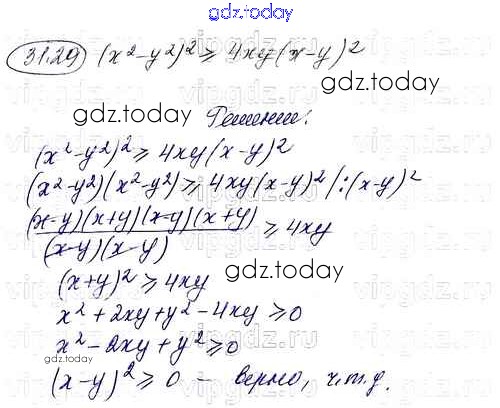 gdz.today
31.29 (x²-y²)² ≥ 4xy(x-y)²
gdz.today
Решение:
(x²-y²)² ≥ 4xy(x-y)²
(x²-y²)(x²-y²) ≥ 4xy(x-y)² /:(x-y)²
(x-y)(x+y)(x-y)(x+y)/(x-y)(x-y) ≥ 4xy
(x+y)² ≥ 4xy
gdz.today
x²+2xy+y²-4xy ≥ 0
x²-2xy+y² ≥ 0
gdz.today
(x-y)² ≥ 0 – верно, ч.т.д.